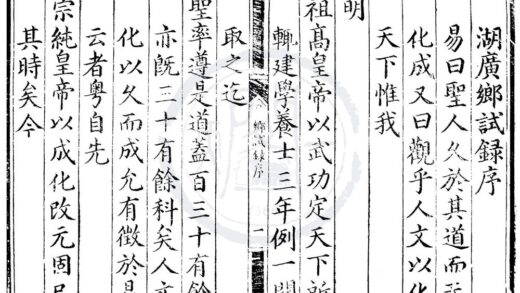 湖廣鄉試録序
易曰聖人久於其道而天
化成又曰觀乎人文以化
天下惟我
鄉試録序
一
明
祖髙皇帝以武功定天下所
輙建學養士三年例一開
取之迄
聖率遵是道蓋百三十有餘
亦旣三十有餘科矣人文
化以久而成允有徵於是
云者粤自先
宗純皇帝以成化改元固已
其時矣今